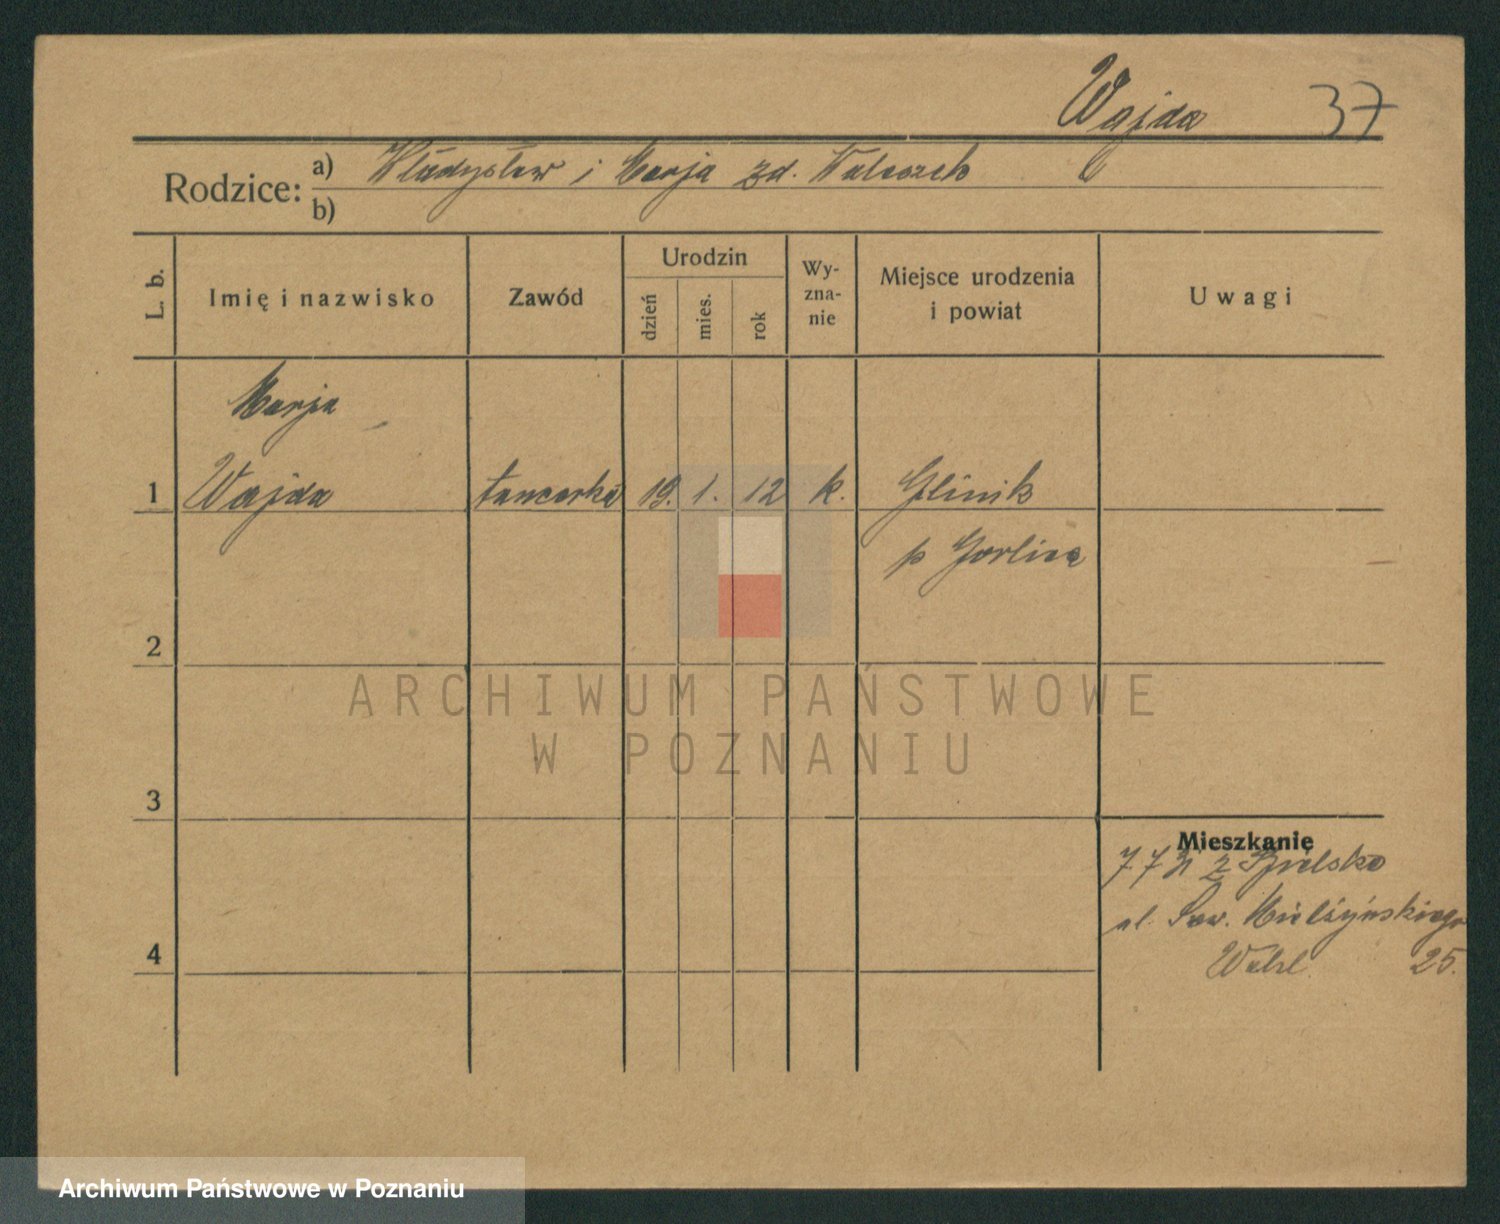 Wajda 37
Rodzice: a) Władysław i Marja zd. Waleszek
b)
L. b. Imię i nazwisko Zawód Urodzin dzień mies. rok Wy-zna-nie Miejsce urodzenia i powiat Uwagi
Marja
1 Wajda tancerka 19. 1. 12 k. Glinik
p Gorlice
2
ARCHIWUM PAŃSTWOWE
W POZNANIU
3
Mieszkanie
7 7 z Bielska
ul. Sew. Mielżyńskiego
4
25.
Archiwum Państwowe w Poznaniu